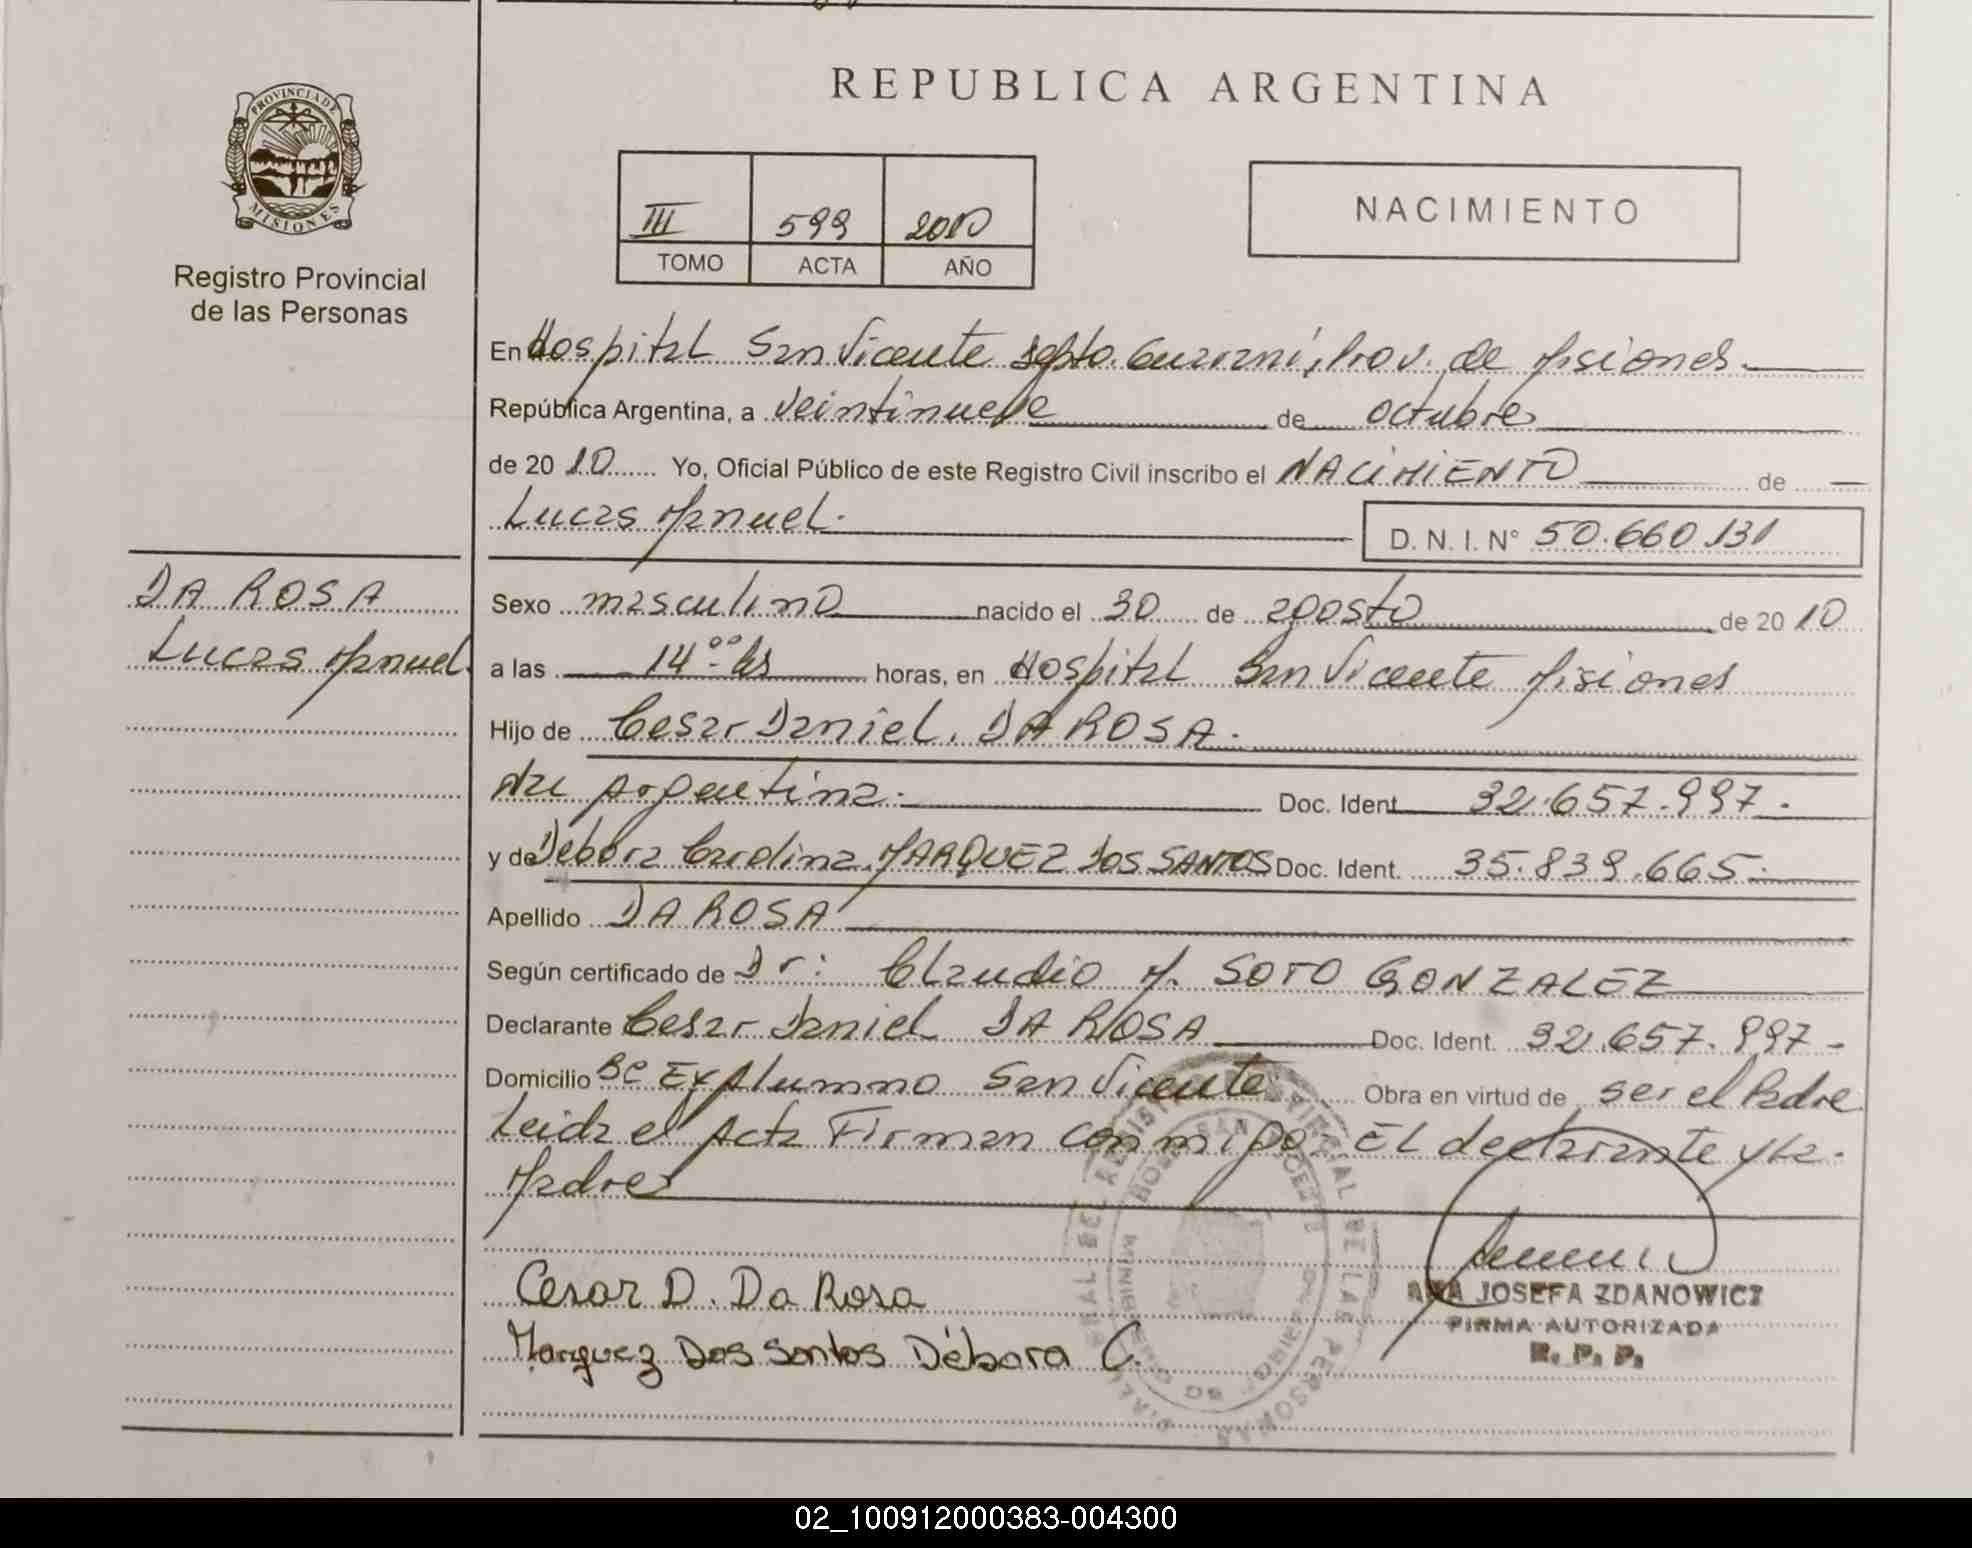 REPUBLICA ARGENTINA
PROVINCIA DE
MISIONES
Registro Provincial
de las Personas
III 599 2010
TOMO ACTA AÑO
NACIMIENTO
En Hospital San Vicente Depto. Guaraní, Prov. de Misiones
República Argentina, a veintinueve de octubre
de 2010 Yo, Oficial Público de este Registro Civil inscribo el NACIMIENTO de
Lucas Manuel.
D. N. I. N° 50.660.131
DA ROSA
Lucas Manuel.
Sexo masculino nacido el 30 de agosto de 2010
a las 14:00 hs horas, en Hospital San Vicente Misiones
Hijo de Cesar Daniel. DA ROSA.
Nac Argentina. Doc. Ident. 32.657.997.
y de Debora Carolina. MARQUEZ DOS SANTOS Doc. Ident. 35.839.665.
Apellido DA ROSA
Según certificado de Dr: Claudio M. SOTO GONZALEZ
Declarante Cesar Daniel DA ROSA Doc. Ident. 32.657.997-
Domicilio Bº Ex Alumno San Vicente Obra en virtud de ser el Padre
Leida el Acta Firman conmigo: El declarante y la.
Madre
Cesar D. Da Rosa
Marquez Dos Santos Débora C.
ANA JOSEFA ZDANOWICZ
FIRMA AUTORIZADA
R. P. P.
02_100912000383-004300